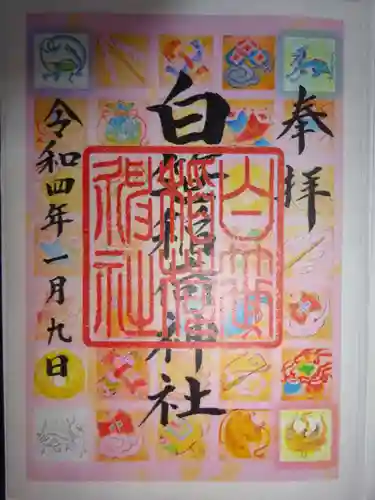 奉拝
白笹稲荷神社
白笹
稲荷
神社
令和四年一月九日